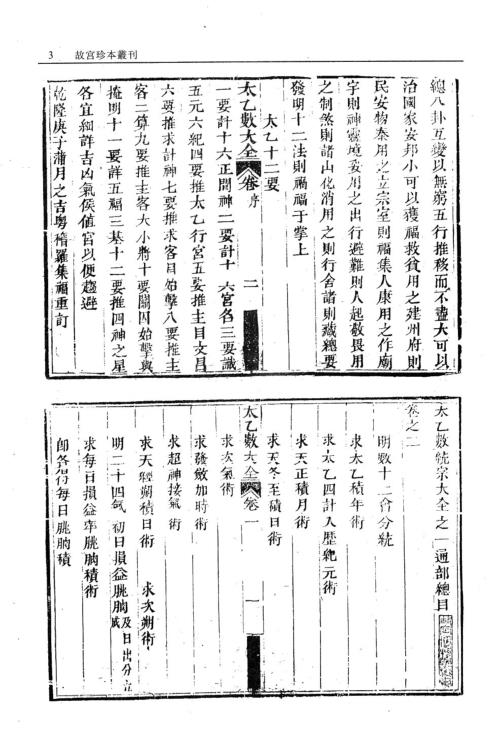 3 故宮珍本叢刊
總八卦互變以無窮五行推移而不盡大可以
治國家安邦小可以獲福救貧用之建州府則
民安物泰用之立宗室則福集人康用之作廟
宇則神靈境妥用之出行避難則人起敬畏用
之制煞則諸山化消用之則行舍諸則藏總要
發明十二法則禍福于掌上
太乙十二要
太乙數大全 卷序 二
一要計十六正間神二要計十六宮名三要識
五元六紀四要推太乙行宮五要推主目文昌
六要推求計神七要推求客目始擊八要推主
客二算九要推主客大小將十要關囚始擊與
掩明十一要詳五福三基十二要推四神之星
各宜細詳吉凶氣侯值宮以便趨避
乾隆庚子蒲月之吉粵稽羅集福重訂
太乙數統宗大全之一通部總目
卷之一
明數十二會分統
求太乙積年術
求太乙四計入歷紀元術
求天正積月術
求天冬至積日術
太乙數大全 卷一 一
求次氣術
求發斂加時術
求超神接氣術
求天經朔積日術 求次朔術
明二十四氣初日損益朓朒及日出分立成
求每日損益率朓朒積術
即各得每日朓朒積